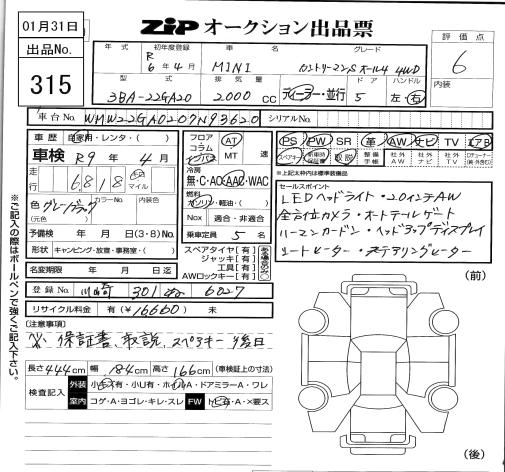 01月31日
ZIP オークション出品票
評価点
出品No.
315
年式 初年度登録 車名 グレード
R 6年4月 MINI カントリーマンS オール4 4WD
6
内装
型式 排気量 ドア ハンドル
3BA-22GA20 2000 CC ディーラー・並行 5 左・右
車台No. WMW22GA0207N93620 シリアルNo.
車歴 自家用・レンタ・( )
車検 R9年4月
走行 6,818 キロ マイル
色 グレー/ブラック カラーNo. 内装色
(元色)
予備検 年 月 日 (3・8)No.
形状 キャンピング・放宣・事務室・( )
名変期限 年 月 日迄
フロア コラム インパネ AT MT 速
冷房 無・C・AC・AAC・WAC
燃料 ガソリン・軽油・( )
Nox 適合・非適合
乗車定員 5名
スペアタイヤ[有]
ジャッキ[有]
工具[有]
AWロックキー[有]
PS PW SR 革 AW ナビ TV エアB
スペアキー 新車時保証書 取説 整備手帳 社外AW 社外ナビ 社外TV
※上記太枠内は標準装備品
セールスポイント
LEDヘッドライト・20インチAW
全方位カメラ・オートテールゲート
ハーマンカードン・ヘッドアップディスプレイ
シートヒーター・ステアリングヒーター
登録No. 川崎 301 ぬ 6027
リサイクル料金 有(¥16660) 未
(注意事項)
保証書、取説、スペアキー後日
長さ444cm 幅184cm 高さ166cm (車検証上の寸法)
検査記入 外装 小キズ有・小U有・ホイルA・ドアミラーA・ワレ
室内 コゲ・A・ヨゴレ・キレ・スレ FW トビ石・A・×要ス
(前)
(後)
※ご記入の際はボールペンで強くご記入下さい。